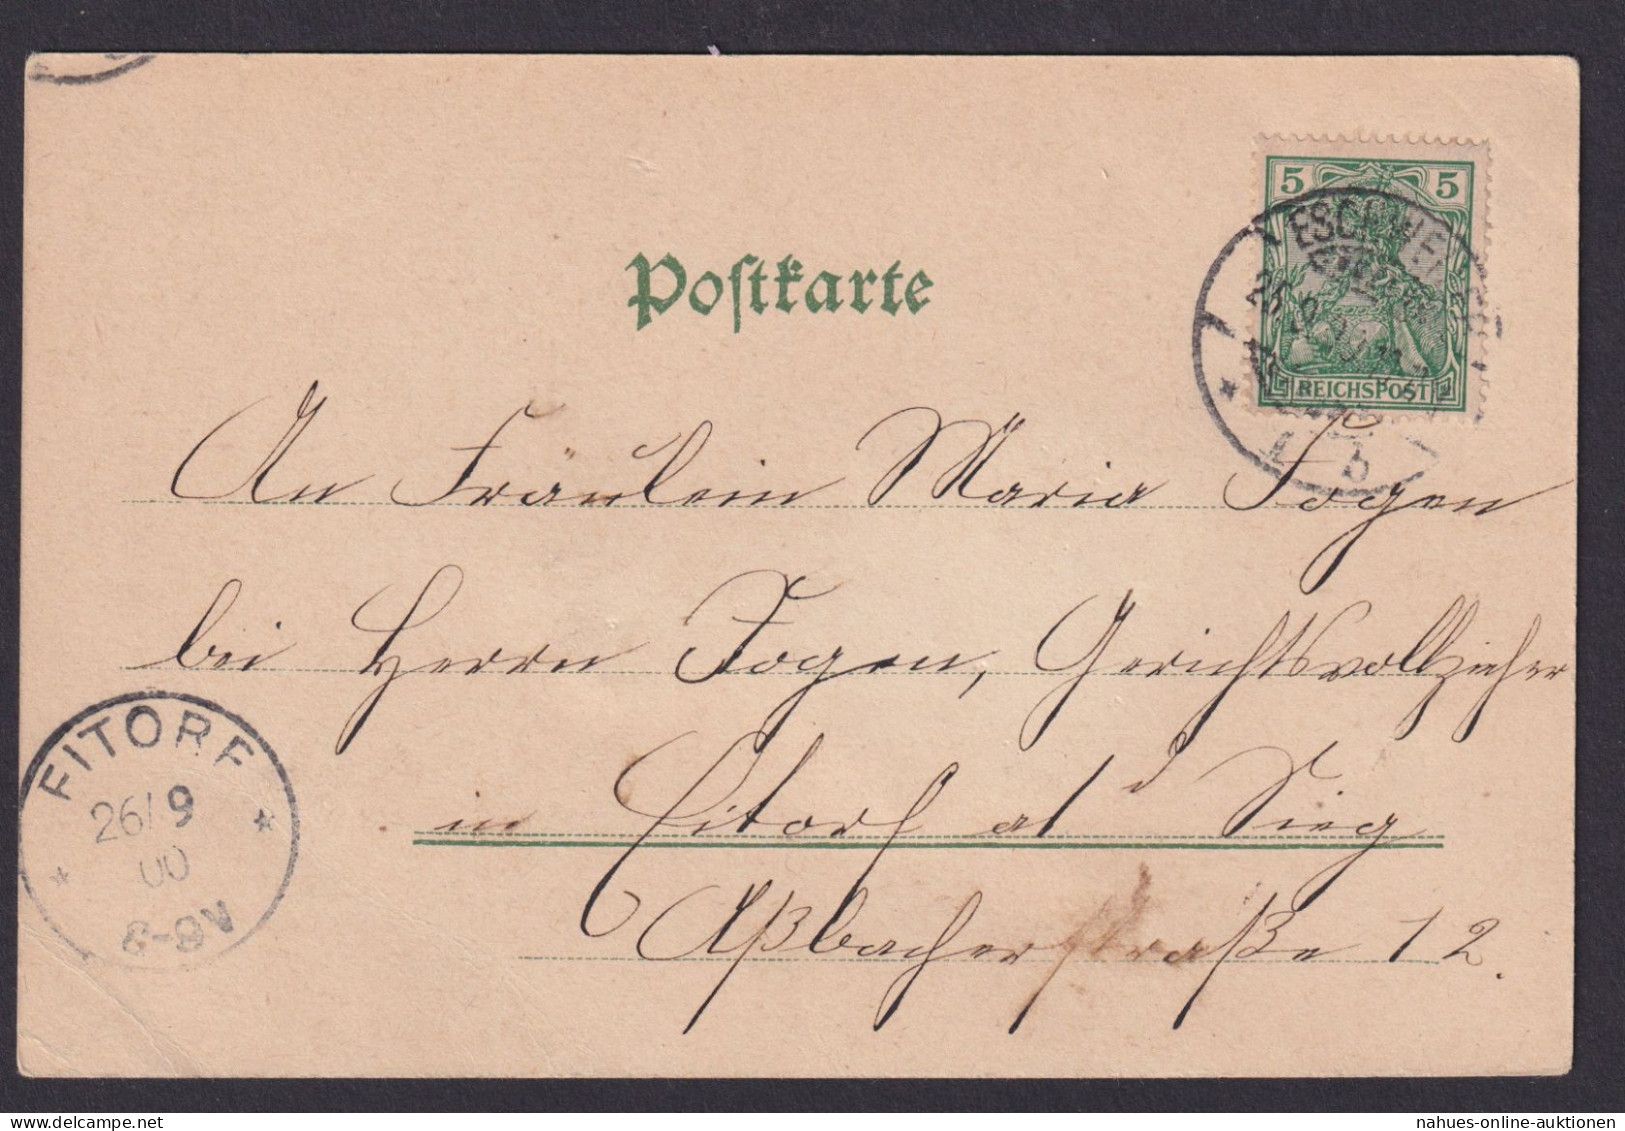 5 5
ESCHWEILER
REICHSPOST
b
Postkarte
An Fräulein Maria Fogen
bei Herrn Fogen, Gerichtsvollzieher
in Eitorf a/d Sieg
Aßbacherstraße 12.
EITORF
26/9
00
8-9V
nahues-online-auktionen